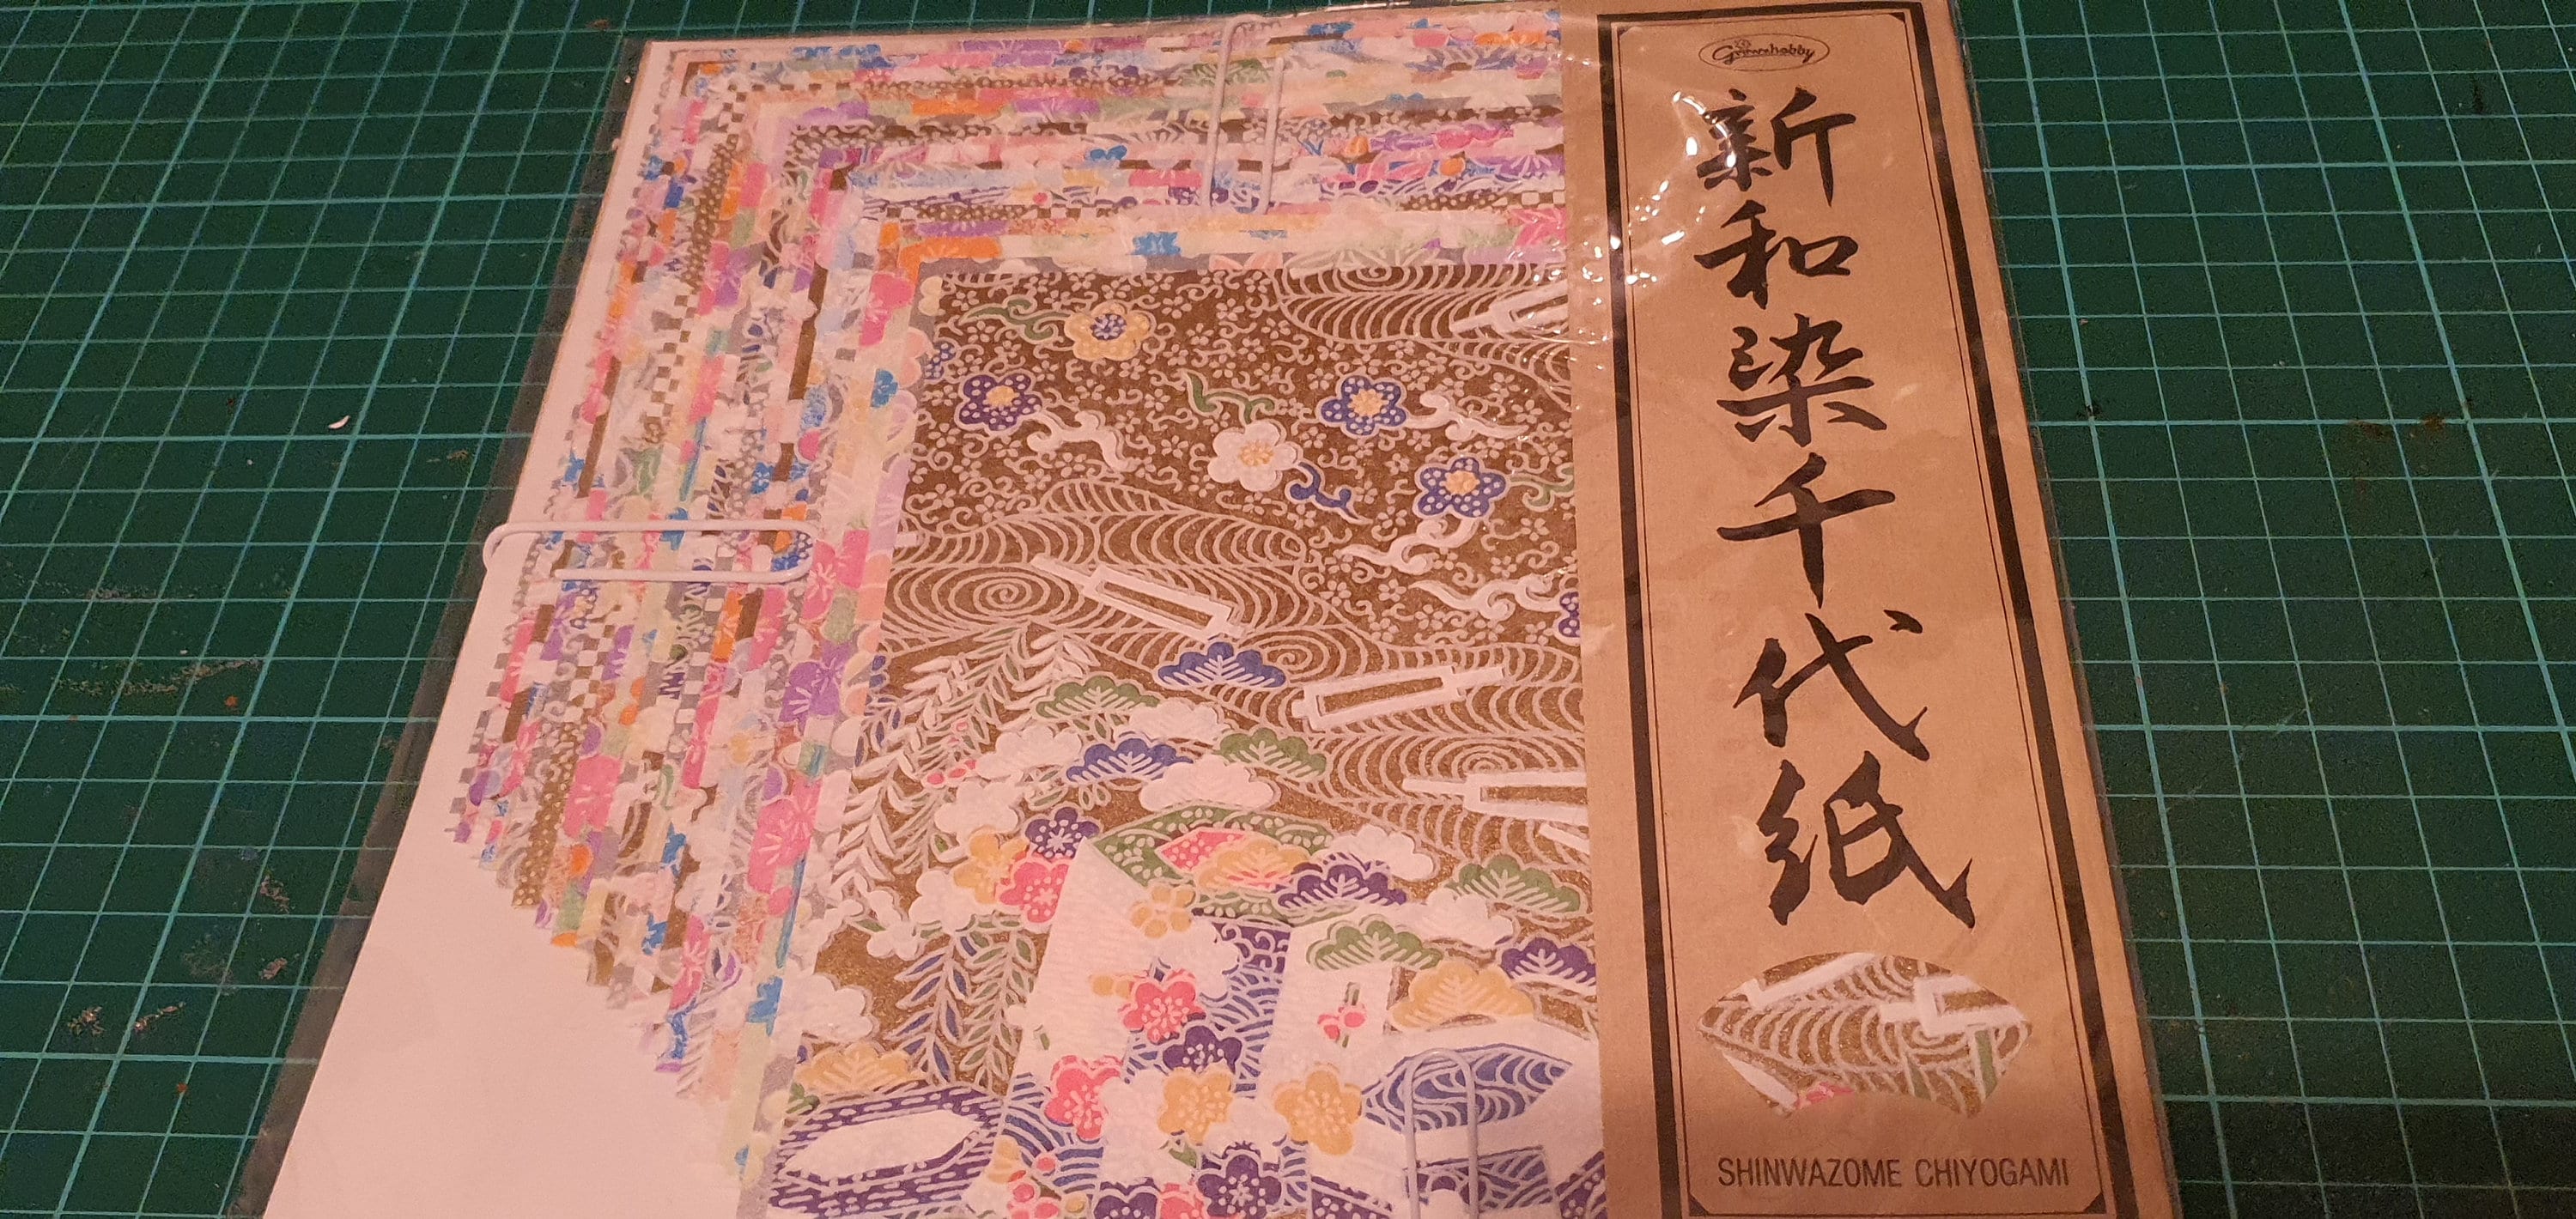 Grimmhobby
新和染千代紙
SHINWAZOME CHIYOGAMI